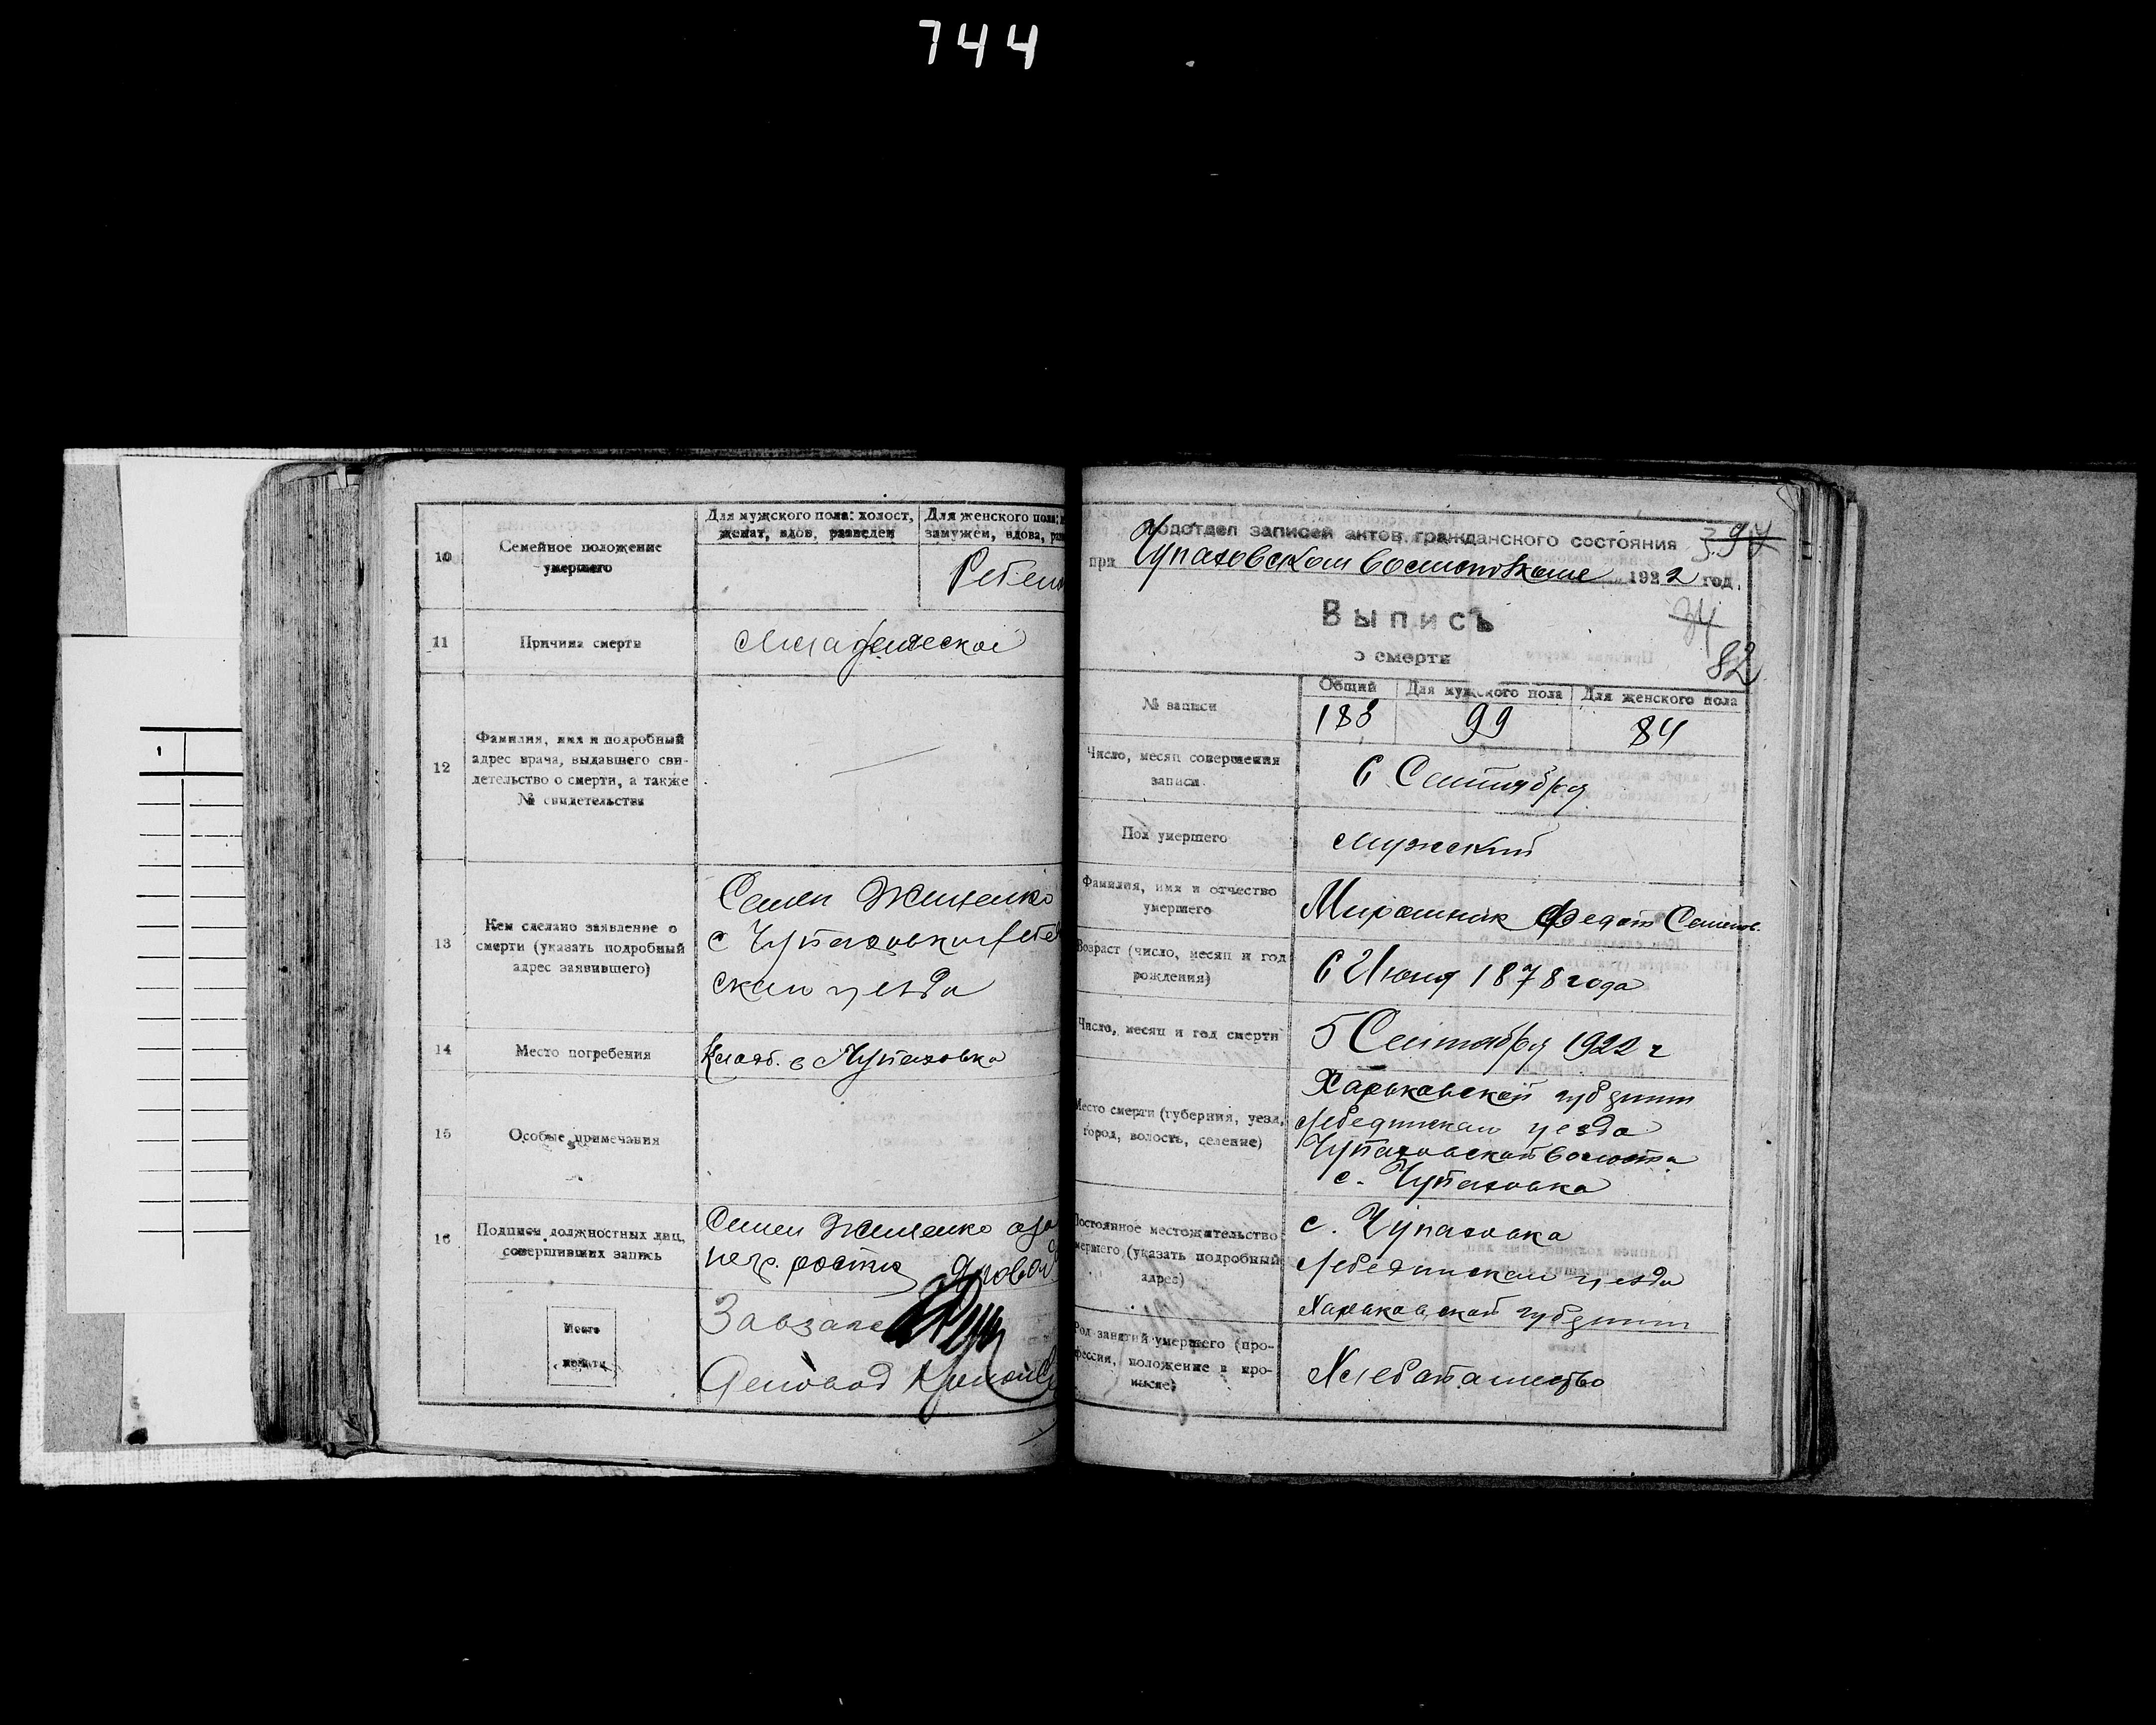 744
10
Семейное положение
умершего
Для мужского пола: холост,
женат, вдов, разведен
Для женского пола:
замужем, вдова,
Ребено
11
Причина смерти
12
Фамилия, имя и подробный
адрес врача, выдавшего сви-
детельство о смерти, а также
№ свидетельства
13
Кем сделано заявление о
смерти (указать подробный
адрес заявившего)
Семен
с Чупаховки Лебе
скаго уезда
14
Место погребения
Кладб. с Чупаховка
15
Особые примечания
16
Подписи должностных лиц,
совершивших запись
Семен
Место
печати
Завзапис
Деловод
подотдел записей актов гражданского состояния
при Чупаховском Волисполкоме 1922 год.
Выпись
о смерти
34
82
№ записи
Общий
Для мужского пола
Для женского пола
183
99
84
Число, месяц совершения
записи
6 Сентября
Пол умершего
мужский
Фамилия, имя и отчество
умершего
Мирошник Федот Семенов.
Возраст (число, месяц и год
рождения)
6 Июня 1878 года
Число, месяц и год смерти
5 Сентября 1922 г
Место смерти (губерния, уезд,
город, волость, селение)
Харьковской губернии
Лебединскаго уезда
Чупаховской волости
с. Чупаховка
Постоянное местожительство
умершего (указать подробный
адрес)
с. Чупаховка
Лебединскаго уезда
Харьковской губернии
Род занятий умершего (про-
фессия, положение в про-
мысле)
Хлебопашество